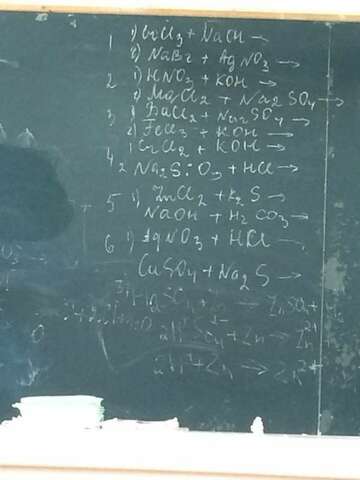 1 1) CrCl3 + NaOH →
2) NaBr + AgNO3 →
2 1) HNO3 + KOH →
2) MgCl2 + Na2SO4 →
3 1) BaCl2 + Na2SO4 →
2) FeCl3 + KOH →
4 1) CrCl2 + KOH →
2 Na2SiO3 + HCl →
5 1) ZnCl2 + K2S →
NaOH + H2CO3 →
6 1) AgNO3 + HCl →
CuSO4 + Na2S →
→ ZnSO4 +
+ Zn → Zn2+
2H+ + Zn → Zn2+